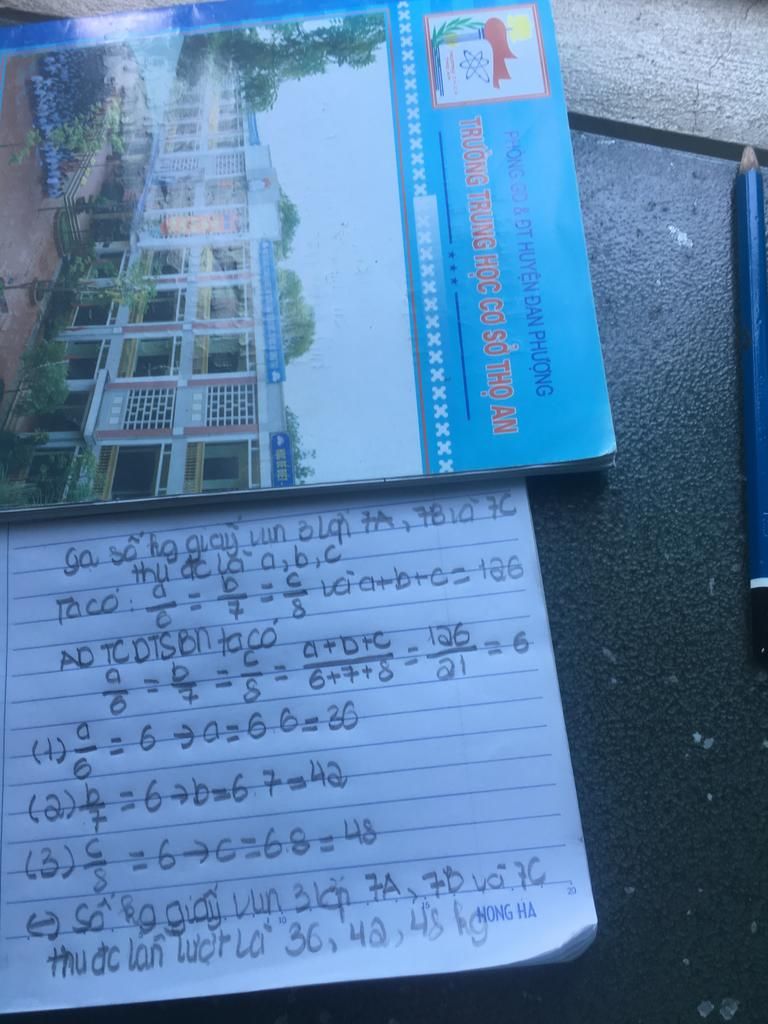 PHÒNG GD & ĐT HUYỆN ĐAN PHƯỢNG
TRƯỜNG TRUNG HỌC CƠ SỞ THỌ AN
Gọi số kg giấy vụn 3 lớp 7A, 7B và 7C
thu đc là a, b, c
Ta có: a/6 = b/7 = c/8 và a+b+c = 126
AD TCDTSBN ta có
a/6 = b/7 = c/8 = a+b+c/6+7+8 = 126/21 = 6
(1) a/6 = 6 → a = 6.6 = 36
(2) b/7 = 6 → b = 6.7 = 42
(3) c/8 = 6 → c = 6.8 = 48
<=> Số kg giấy vụn 3 lớp 7A, 7B và 7C
thu đc lần lượt là 36, 42, 48 kg
10 15 20
HONG HA